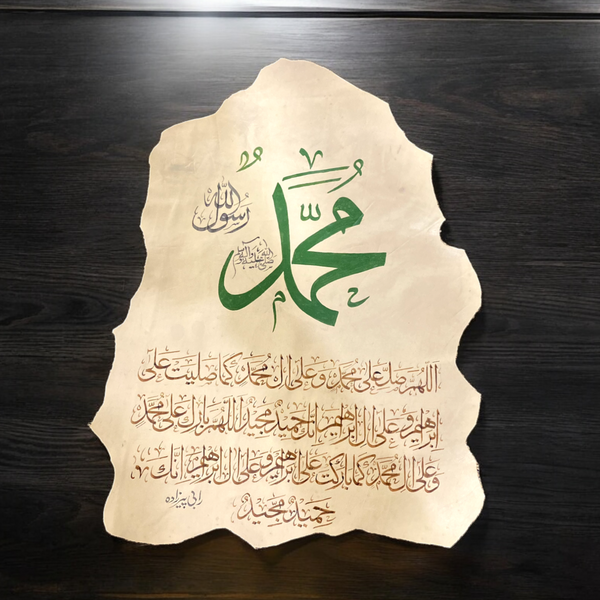 مُحَمَّدٌ
رَسُولُ اللّٰه
صلی الله علیه وآله وسلم
اَللّٰهُمَّ صَلِّ عَلٰى مُحَمَّدٍ وَعَلٰى اٰلِ مُحَمَّدٍ كَمَا صَلَّيْتَ عَلٰى
اِبْرَاهِيْمَ وَعَلٰى اٰلِ اِبْرَاهِيْمَ اِنَّكَ حَمِيْدٌ مَجِيْدٌ اَللّٰهُمَّ بَارِكْ عَلٰى مُحَمَّدٍ
وَعَلٰى اٰلِ مُحَمَّدٍ كَمَا بَارَكْتَ عَلٰى اِبْرَاهِيْمَ وَعَلٰى اٰلِ اِبْرَاهِيْمَ اِنَّكَ
حَمِيْدٌ مَجِيْدٌ
پیرزاده